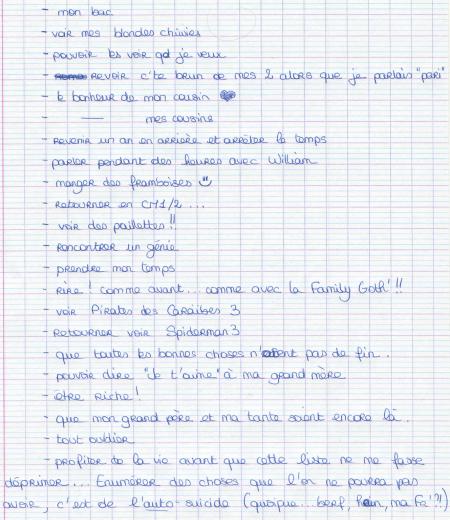 - mon bac
- voir mes blondes chiries
- pouvoir les voir qd je veux
- REVOIR c'te brun de mes 2 alors que je parlais "pari"
- le bonheur de mon cousin ♥
- —— mes cousins
- Revenir un an en arrière et arrêter le temps
- parler pendant des heures avec William
- manger des framboises
- Retourner en CM1/2 ...
- voir des paillettes !!
- Rencontrer un génie
- prendre mon temps
- RIRE ! comme avant... comme avec la Family Goth' !!
- voir Pirates des Caraïbes 3
- Retourner voir Spiderman 3
- que toutes les bonnes choses n'aient pas de fin.
- pouvoir dire "Je t'aime" à ma grand mère
- être Riche !
- que mon grand père et ma tante soient encore là.
- tout oublier
- profiter de la vie avant que cette liste ne me fasse
déprimer... Enumérer des choses que l'on ne pourra pas
avoir, c'est de l'auto-suicide (quoique... bref, hein, ma Fa' ?!)